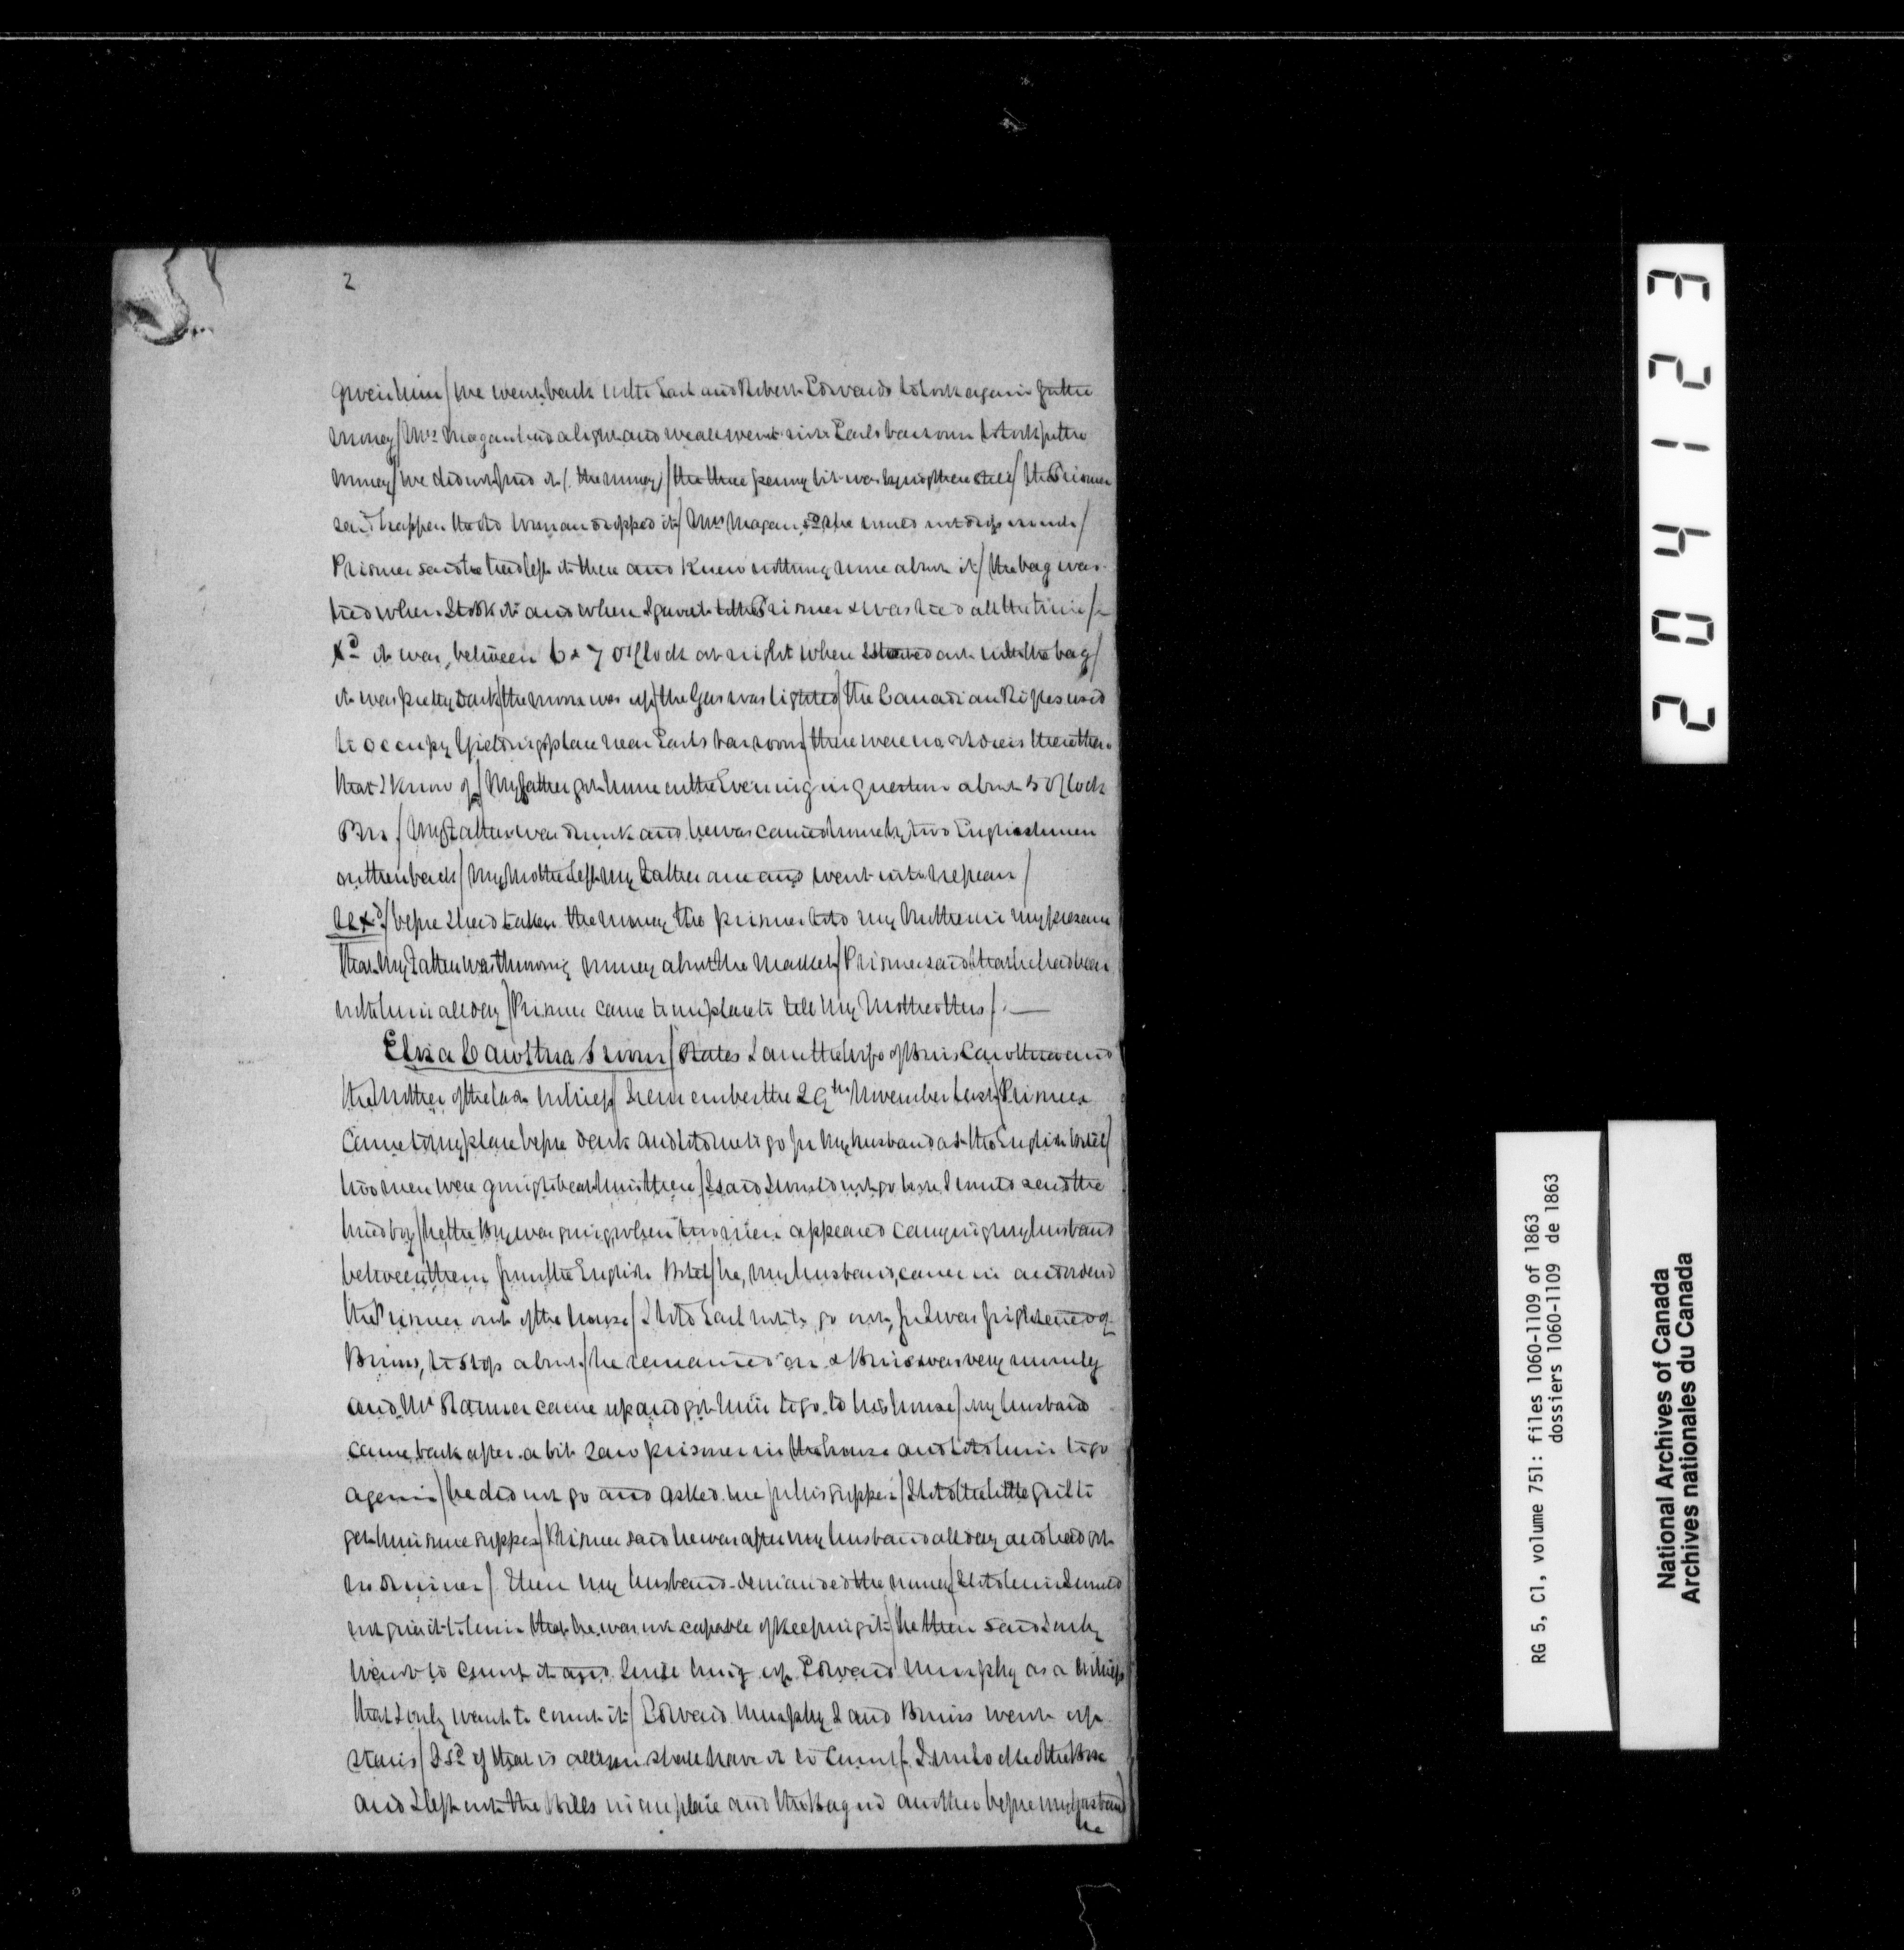 2
given him / We went back with Earl and Robert Edwards to look again for the
money / Mrs Magan had a light and we all went into Earls bar room to look for the
money / we did not find it (the money) / the three penny bit was lying there still / the Prisoner
said happen the old woman dropped it / Mrs Magan sd she would not drop much /
Prisoner said he had left it there and knew nothing more about it / the bag was
tied when I took it and when I gave it to the Prisoner & was tied all the time /
Xd it was between 6 & 7 O'Clock at night when I started out with the bag /
it was pretty dark / the moon was up / the Gas was lighted / the Canadian Rifles used
to occupy building place near Earls bar room / there were no soldiers there then
that I know of / My father got home on the Evening in question about 5 O'Clock
Pm / My Father was drunk and he was carried home by two Englishmen
on their back / My Mother left my Father and went
Rexd / before I had taken the money the prisoner told my Mother in my presence
that My Father was throwing money about the Market / Prisoner said that he had been
with him all day / Prisoner came to our place to tell my Mother this /
Eliza / States I am the Wife of and
the Mother of the last Witness / I remember the 29th November last / Prisoner
came to my place before dark and told me to go for my husband at the English Hotel /
two men were going to beat him there / I said I would not go there I would send the
hired boy / he the Boy was going when two men appeared carrying my husband
between them from the English Hotel / he, my husband, came in and ordered
the Prisoner out of the house / I told Earl not to go out, for I was frightened of
to stop about / he remained on & was very unruly
and Mr came up and got him to go to his house / my husband
came back after a bit saw prisoner in the house and told him to go
again / he did not go and asked me for his supper / I told the little girl to
get him some supper / Prisoner said he was after my husband all day and had got
no dinner / then my husband demanded the money / I told him I would
not give it to him that he was not capable of keeping it / he then said I only
want to count it and I will bring up Edward Murphy as a Witness
that I only want to count it / Edward Murphy I and went up
stairs / I sd if that is all you shall have it to count / I unlocked the Box
and I left out the Bills in one place and the Bag in another before my husband
he
204123
RG 5, C1, volume 751: files 1060-1109 of 1863
dossiers 1060-1109 de 1863
National Archives of Canada
Archives nationales du Canada